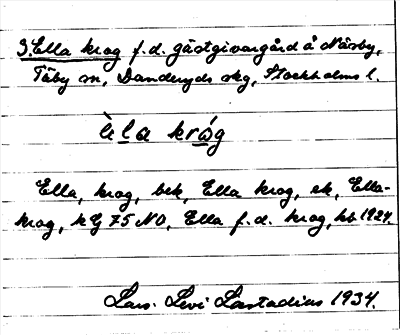 3. Ella krog f. d. gästgivargård å Näsby,
Täby sn, Danderyds skg, Stockholms l.
èla kråg
Ella, krog, bek, Ella krog, ek, Ella-
krog, k G 75 NO, Ella f. d. krog, hb 1924.
Lars-Levi Læstadius 1934.